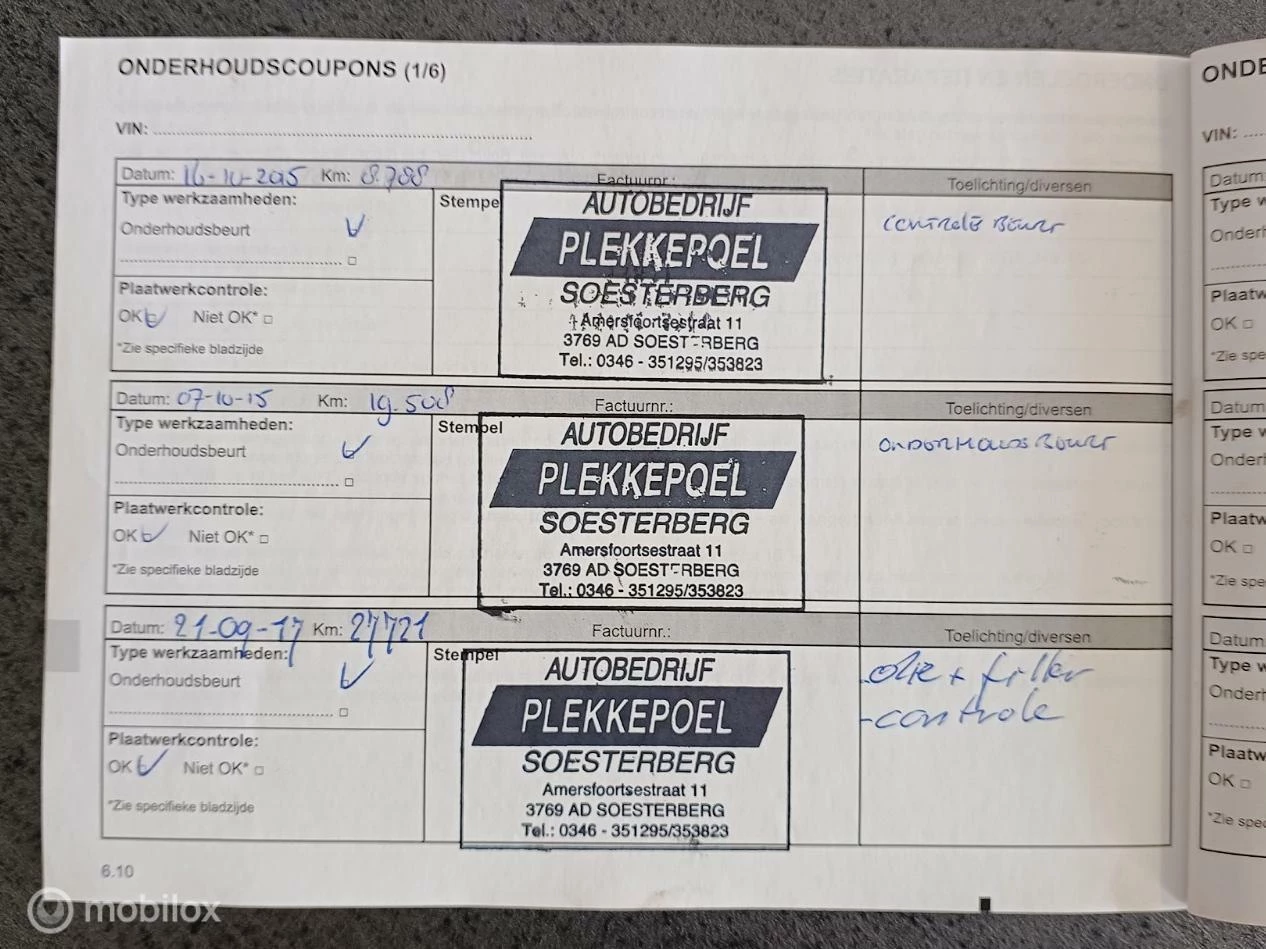 ONDERHOUDSCOUPONS (1/6)
VIN:
Datum: 16-10-2015 Km: 8.788 Factuurnr.: Toelichting/diversen
Type werkzaamheden: Stempel
Onderhoudsbeurt
Plaatwerkcontrole:
OK Niet OK*
*Zie specifieke bladzijde
AUTOBEDRIJF
PLEKKEPOEL
SOESTERBERG
Amersfoortsestraat 11
3769 AD SOESTERBERG
Tel.: 0346 - 351295/353823
controle Beurt
Datum: 07-10-15 Km: 19.508 Factuurnr.: Toelichting/diversen
Type werkzaamheden: Stempel
Onderhoudsbeurt
Plaatwerkcontrole:
OK Niet OK*
*Zie specifieke bladzijde
AUTOBEDRIJF
PLEKKEPOEL
SOESTERBERG
Amersfoortsestraat 11
3769 AD SOESTERBERG
Tel.: 0346 - 351295/353823
ONDERHOUDS BEURT
Datum: 21-09-17 Km: 27721 Factuurnr.: Toelichting/diversen
Type werkzaamheden: Stempel
Onderhoudsbeurt
Plaatwerkcontrole:
OK Niet OK*
*Zie specifieke bladzijde
AUTOBEDRIJF
PLEKKEPOEL
SOESTERBERG
Amersfoortsestraat 11
3769 AD SOESTERBERG
Tel.: 0346 - 351295/353823
olie + filter
-controle
6.10
mobilox
ONDE
VIN:
Datum
Type w
Onderh
Plaatw
OK
*Zie spe
Datum
Type w
Onderh
Plaatw
OK
*Zie spe
Datum
Type w
Onderh
Plaatw
OK
*Zie spec